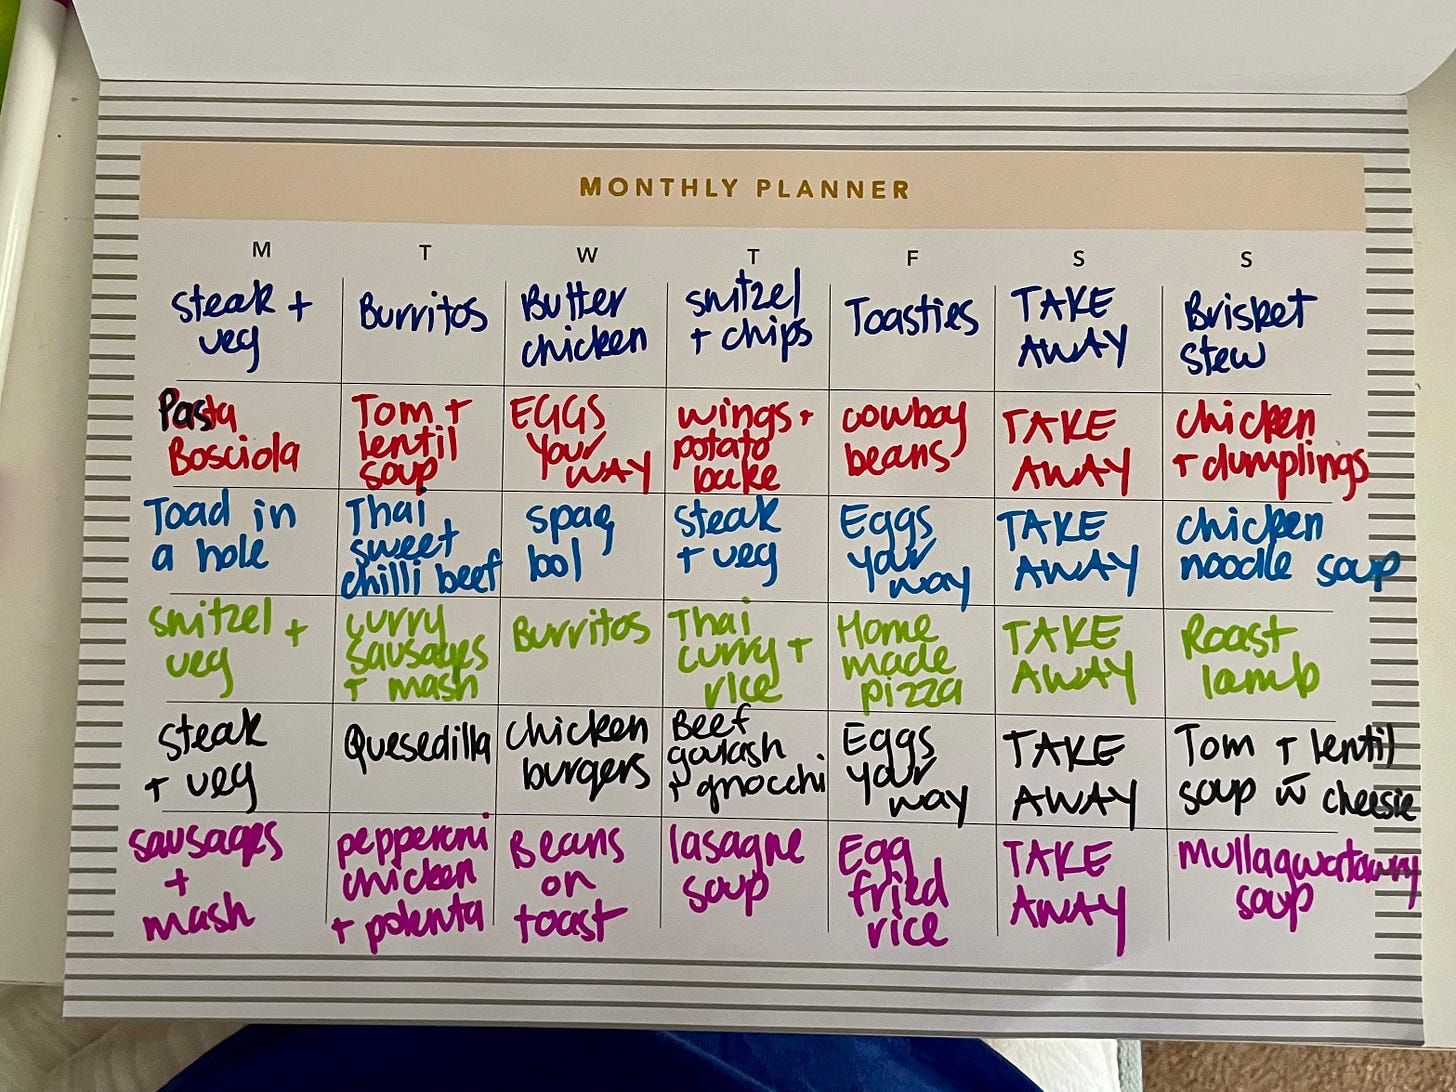 MONTHLY PLANNER
M T W T F S S
steak +
veg
Burritos
Butter
chicken
snitzel
+ chips
Toasties
TAKE
AWAY
Brisket
stew
Pasta
Bosciola
Tom +
lentil
soup
EGGS
your
WAY
wings +
potato
bake
cowboy
beans
TAKE
AWAY
chicken
+ dumplings
Toad in
a hole
Thai
sweet
chilli beef
spag
bol
steak
+ veg
Eggs
your
way
TAKE
AWAY
chicken
noodle soup
snitzel +
veg
curry
sausages
+ mash
Burritos
Thai
curry +
rice
Home
made
pizza
TAKE
AWAY
Roast
lamb
steak
+ veg
Quesedilla
chicken
burgers
Beef
goulash
+ gnocchi
Eggs
your
way
TAKE
AWAY
Tom + lentil
soup w̄ cheesie
sausages
+
mash
pepperoni
chicken
+ polenta
Beans
on
toast
lasagne
soup
Egg
fried
rice
TAKE
AWAY
soup